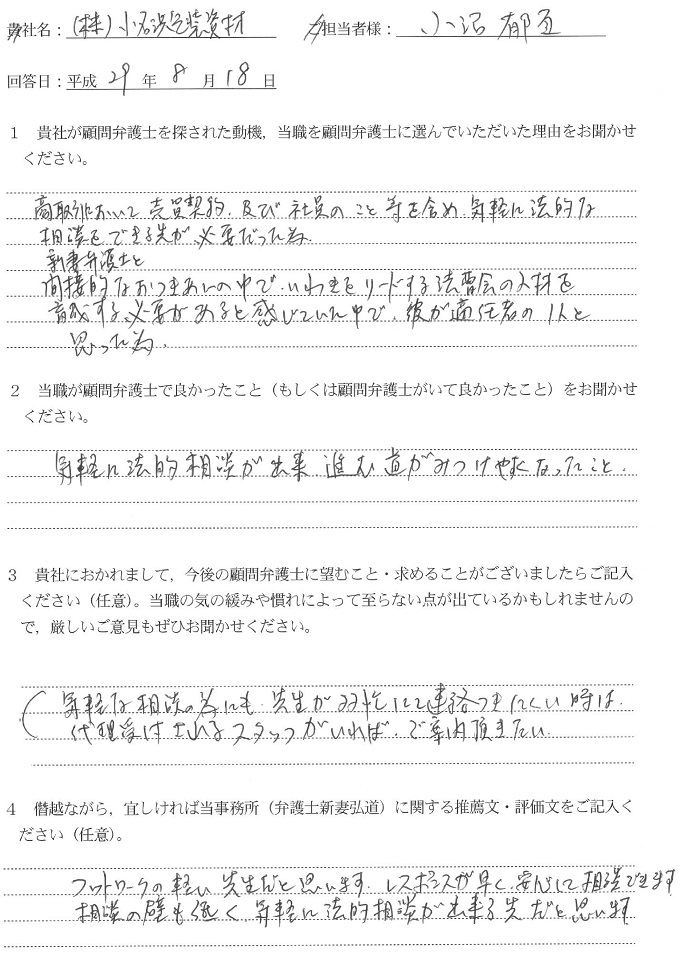 貴社名：(株)小名浜包装資材　担当者様：小沼郁亘
回答日：平成 29 年 8 月 18 日
１　貴社が顧問弁護士を探された動機，当職を顧問弁護士に選んでいただいた理由をお聞かせ
ください。
商取引において売買契約、及び社員のこと等を含め、気軽に法的な
相談をできる先が必要だった為。
新妻弁護士と
間接的なおつきあいの中で、いわきをリードする法曹会の人材を
育成する必要があると感じていた中で、彼が適任者の1人と
思った為。
２　当職が顧問弁護士で良かったこと（もしくは顧問弁護士がいて良かったこと）をお聞かせ
ください。
気軽に法的相談が出来、進む道がみつけやすくなったこと。
３　貴社におかれまして，今後の顧問弁護士に望むこと・求めることがございましたらご記入
ください（任意）。当職の気の緩みや慣れによって至らない点が出ているかもしれませんの
で，厳しいご意見もぜひお聞かせください。
気軽な相談の為にも、先生が多忙にて連絡つきにくい時は、
代理受付出来るスタッフがいれば、ご案内頂きたい
４　僭越ながら，宜しければ当事務所（弁護士新妻弘道）に関する推薦文・評価文をご記入く
ださい（任意）。
フットワークの軽い先生だと思います。レスポンスが早く、安心して相談できます
相談の壁も低く、気軽に法的相談が出来る先だと思います